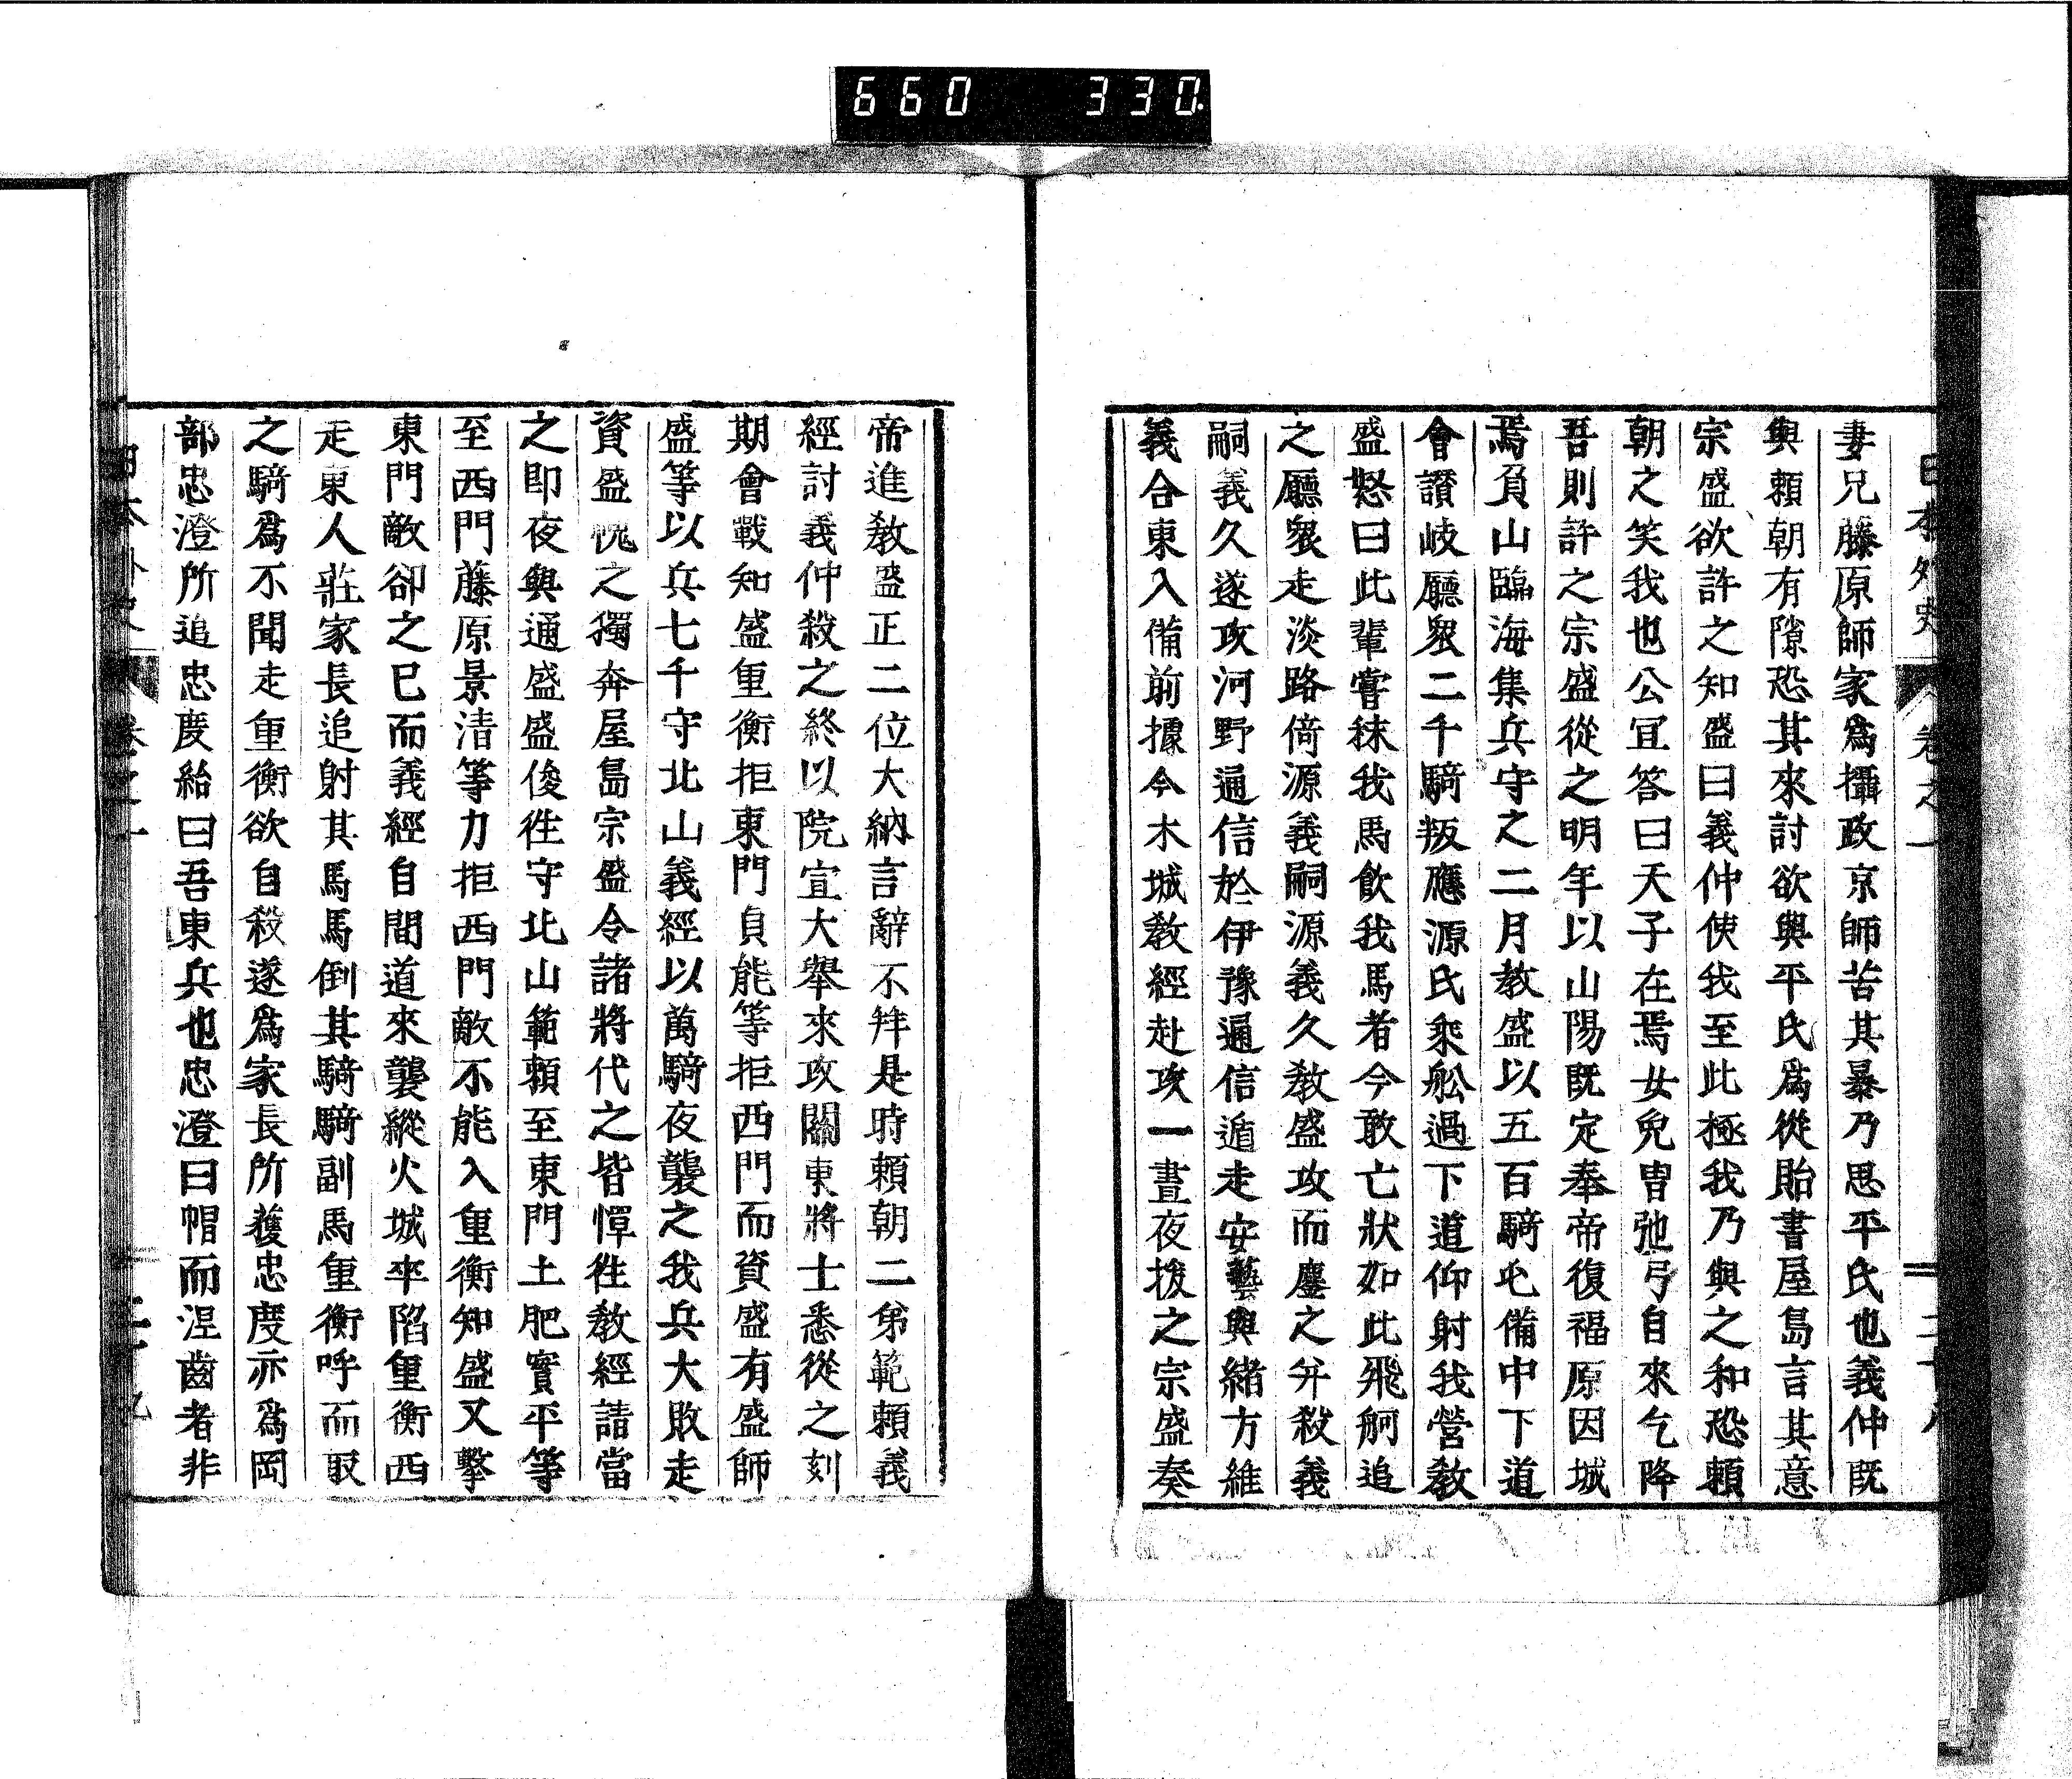 660 330.
日本外史 卷之一 二十八
妻兄藤原師家爲攝政京師苦其暴乃思平氏也義仲既
與賴朝有隙恐其來討欲與平氏爲從貽書屋島言其意
宗盛欲許之知盛曰義仲使我至此極我乃與之和恐賴
朝之笑我也公宜答曰天子在焉女兜冑弛弓自來乞降
吾則許之宗盛從之明年以山陽既定奉帝復福原因城
焉負山臨海集兵守之二月教盛以五百騎屯備中下道
會讃岐廳衆二千騎叛應源氏乘舩過下道仰射我營教
盛怒曰此輩嘗秣我馬飮我馬者今敢亡狀如此飛舸追
之廳衆走淡路倚源義嗣源義久教盛攻而鏖之幷殺義
嗣義久遂攻河野通信於伊豫通信遁走安藝與緖方維
義合東入備前據今木城教經赴攻一晝夜拔之宗盛奏
帝進教盛正二位大納言辭不拜是時賴朝二弟範賴義
經討義仲殺之終以院宣大舉來攻關東將士悉從之刻
期會戰知盛重衡拒東門貞能等拒西門而資盛有盛師
盛等以兵七千守北山義經以萬騎夜襲之我兵大敗走
資盛愧之獨奔屋島宗盛令諸將代之皆憚徃教經請當
之卽夜與通盛盛俊徃守北山範賴至東門土肥實平等
至西門藤原景清等力拒西門敵不能入重衡知盛又擊
東門敵卻之已而義經自間道來襲縱火城卒陷重衡西
走東人莊家長追射其馬馬倒其騎騎副馬重衡呼而取
之騎爲不聞走重衡欲自殺遂爲家長所獲忠度亦爲岡
部忠澄所追忠度紿曰吾東兵也忠澄曰帽而涅齒者非
日本外史 卷之一 二十九